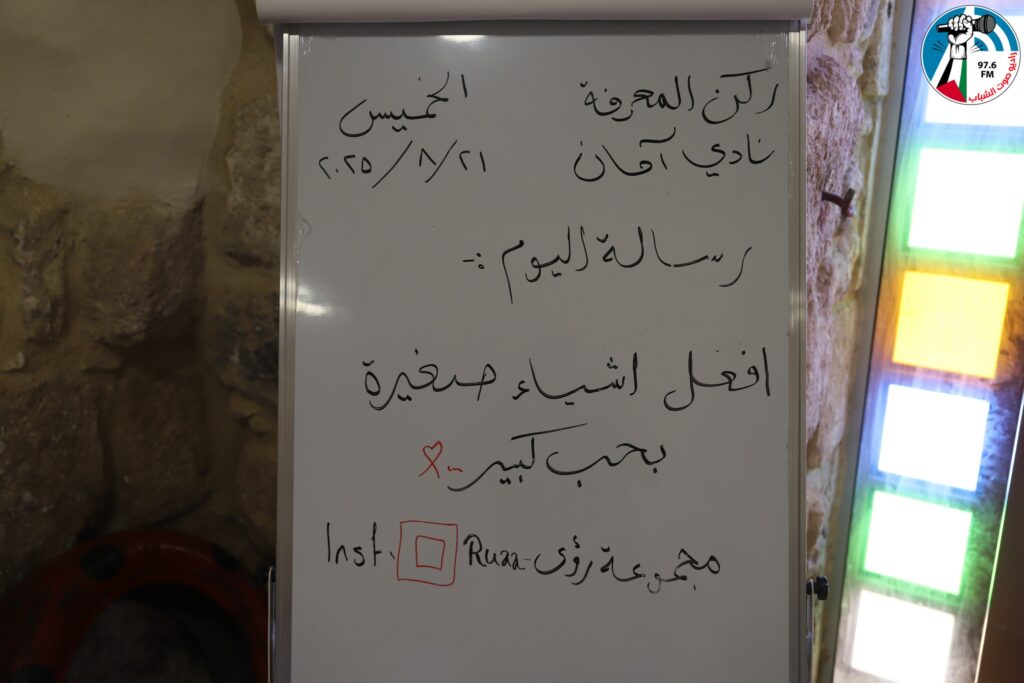 ركن المعرفة
نادي آفان
الخميس
٢٠٢٥/٨/٢١
رسالة اليوم :-
افعل اشياء صغيرة
بحب كبير ..
مجموعة رؤى - Ruaa Inst.
97.6
FM
راديو صوت الشباب